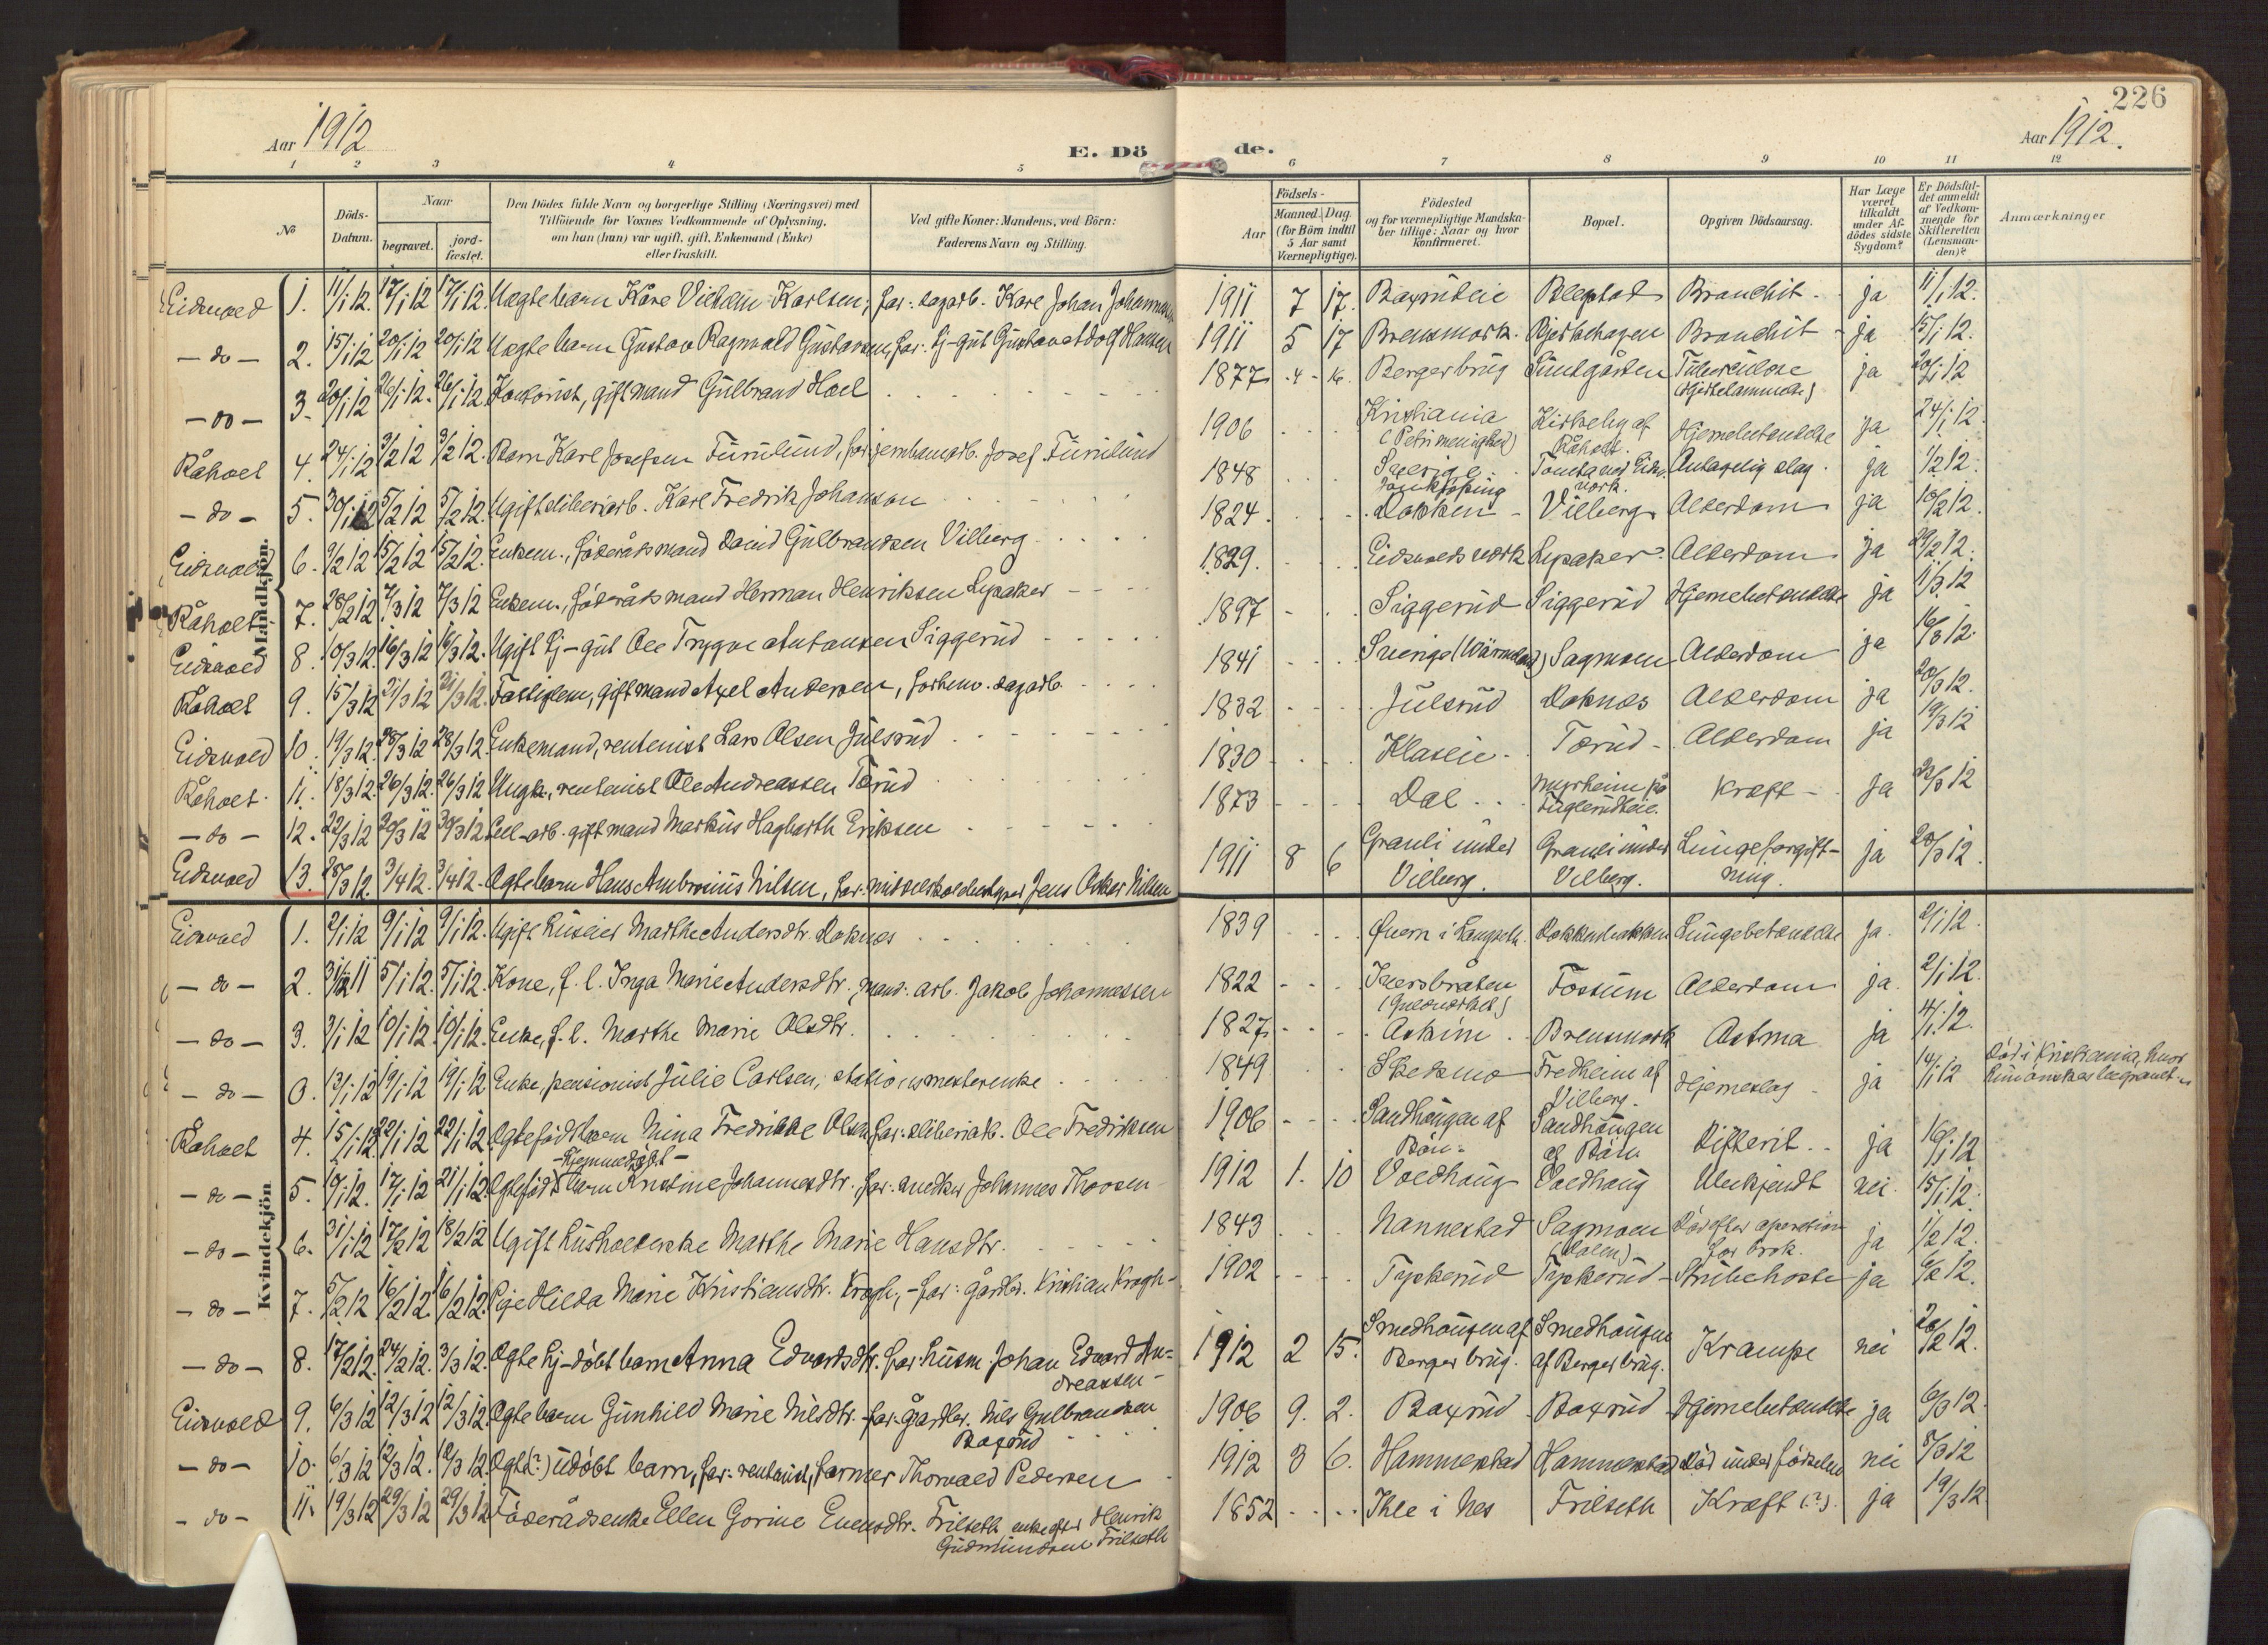 226
Aar 1912
E. Dö
de.
Aar 1912.
1 2 3 4 5 6 7 8 9 10 11 12
No
Döds-
Datum.
Naar
begravet.
jord-
fæstet.
Den Dödes fulde Navn og borgerlige Stilling (Næringsvei) med
Tilföiende for Voxnes Vedkommende af Oplysning,
om han (hun) var ugift, gift, Enkemand (Enke)
eller fraskilt.
Ved gifte Koner: Mandens, ved Börn:
Faderens Navn og Stilling.
Födsels-
Aar
Maaned. Dag
(for Börn indtil
5 Aar samt
Værnepligtige).
Födested
og for værnepligtige Mandska-
ber tillige: Naar og hvor
konfirmeret.
Bopæl.
Opgiven Dödsaarsag.
Har Læge
været
tilkaldt
under Af-
dödes sidste
Sygdom?
Er Dödsfal-
det anmeldt
af Vedkom-
mende for
Skifteretten
(Lensman-
den)?
Anmærkninger
Mandkjön.
Eidsvold 1. 11/1 12. 17/1 12 17/1 12. Uægte barn Kåre Vilhelm Karlsen; far: dagarb. Karl Johan Johannessen 1911 7 17. Bøxrudeie Blegstad Bronchit - ja 11/1 12.
- do - 2. 15/1 12 20/1 12 20/1 12 Uægte barn Gustav Ragnvald Gustavsen, far: Ej-gut Gustav Adolf Hansen 1911 5 17 Brensmork. Bjerkehagen Bronchit - ja 15/1 12.
- do - 3. 20/1 12 26/1 12. 26/1 12. Kontorist, gift mand Gulbrand Hoel 1877 4 16. Bergerbrug Sundgården Tuberkulose ja 20/1 12
Råholt 4. 24/1 12 3/2 12 3/2 12. Barn Karl Josefsen Furulund, far: jernbanearb. Josef Furulund 1906 Kristiania
(Petri menighed) Kirkeby af
Råholt. Hjernebetændelse ja 24/1 12.
- do - 5. 30/1 12 5/2 12 5/2 12. Ugift sliberiarb. Karl Fredrik Johanson 1848 Sverige
Jönköping Antagelig slag. ja 1/2 12.
Eidsvold 6. 9/2 12 15/2 12 15/2 12. Enkem., föderådsmand David Gulbrandsen Vilberg 1824. Dokken - Vilberg Alderdom ja 10/2 12.
Råholt - 7. 28/2 12 7/3 12 7/3 12 Enkem., föderådsmand Herman Henriksen Lysaker 1829. Eidsvolds værk Lysaker. Alderdom ja 29/2 12.
Eidsvold 8. 10/3 12. 16/3 12 16/3 12. Ugift Ej-gut Ole Trygve Antonsen Siggerud 1897 Siggerud Siggerud Hjernebetændelse ja 11/3 12
Råholt 9. 15/3 12 21/3 12 21/3 12. Fattiglem, gift mand Axel Andersen, forhenv. dagarb. 1841 Sverige (Wärmland) Sagmoen Alderdom ja 16/3 12.
Eidsvold 10. 19/3 12. 28/3 12 28/3 12. Enkemand, rentenist Lars Olsen Julsrud 1832 Julsrud Doknes Alderdom ja 20/3 12.
Råholt. 11. 18/3 12. 26/3 12. 26/3 12 Ungk., rentenist Ole Andreassen Torud 1830 Klaseie - Torud - Alderdom ja 19/3 12
- do - 12. 22/3 12 30/3 12 30/3 12 Cell-arb. gift mand Markus Hagbarth Eriksen 1873 Dal Myrheim på
Fuglerudeie. Kræft - ja 22/3 12
Eidsvold 13. 28/3 12. 3/4 12. 3/4 12. Ægte barn Hans Ambrosius Nilsen, far: Jens Oskar Nilsen 1911 8 6 Granli under
Vilberg. Granli under
Vilberg. Lungeforgift-
ning. ja 28/3 12.
Kvindekjön
Eidsvold 1. 2/1 12 9/1 12 9/1 12. Ugift huseier Marthe Andersdtr. Doknes 1839 Dokkenbakken Lungebetændelse ja. 2/1 12.
- do - 2. 31/12 11 5/1 12. 5/1 12. Kone, f. l. Inga Marie Andersdtr. mand: arb. Jakob Johannessen 1822 Fossum Alderdom ja. 2/1 12.
- do - 3. 3/1 12 10/1 12. 10/1 12. Enke, f. l. Marthe Marie Olsdtr. 1827 Askim Brensmork Astma ja 4/1 12.
- do - 0. 13/1 12 19/1 12 19/1 12 Enke, pensionist Julie Carlsen, stationsmesterenke 1849 Skedsmo Fredheim af
Vilberg. Hjerneslag ja 14/1 12 Död i Kristiania, hvor
hun önskes begravet
Råholt 4. 15/1 12 22/1 12 22/1 12. Ægtefödt barn Nina Fredrikke Olsen far: sliberiarb. Ole Fredriksen 1906 Sandhaugen af
Bön. Sandhaugen
af Bön. Difterit ja 16/1 12
- Hjemmedöbt -
- do - 5. 10/1 12. 17/1 12 21/1 12. Ægtefödt barn Kristine Johannesdtr. far: snedker Johannes Thorsen 1912 1. 10 Voldhaug Voldhaug Ubekjendt nei 15/1 12.
- do - 6. 31/1 12 17/2 12 18/2 12 Ugift husholderske Marthe Marie Hansdtr. 1843 Nannestad Sagmoen
(Dalen) Död efter operation
for brok. ja 1/2 12.
- do - 7. 5/2 12 16/2 12. 16/2 12. Pige Hilda Marie Kristiansdtr. Krogh, - far: gårdbr. Kristian Krogh - 1902 Tyskerud Tyskerud - Strubehoste ja 6/2 12.
- do - 8. 17/2 12. 24/2 12. 3/3 12. Ægte hj-döbt barn Anna Edvardsdtr. far: husm. Johan Edvard An-
dreassen - 1912 2 15. Smedhaugen af
Berger brug. Smedhaugen
af Berger brug. Krampe nei 20/2 12.
Eidsvold 9. 6/3 12 12/3 12 12/3 12. Ægte barn Gunhild Marie Nilsdtr. - far: gårdbr. Nils Gulbrandsen
Bøxrud 1906 9. 2. Bøxrud - Bøxrud - Hjernebetændelse ja 6/3 12.
- do - 10. 6/3 12 12/3 12. 12/3 12. Ægte(?) udöbt barn, far: rentenist, farmer Thorvald Pedersen 1912 3 6. Hammerstad Hammerstad Död under födselen nei 8/3 12
- do - 11. 19/3 12 29/3 12 29/3 12 Föderådsenke Ellen Gorine Evensdtr. Frilseth enke efter Henrik
Gudmundsen Frilseth 1852 Ihle i Nes Frilseth Kræft (?). ja 19/3 12.